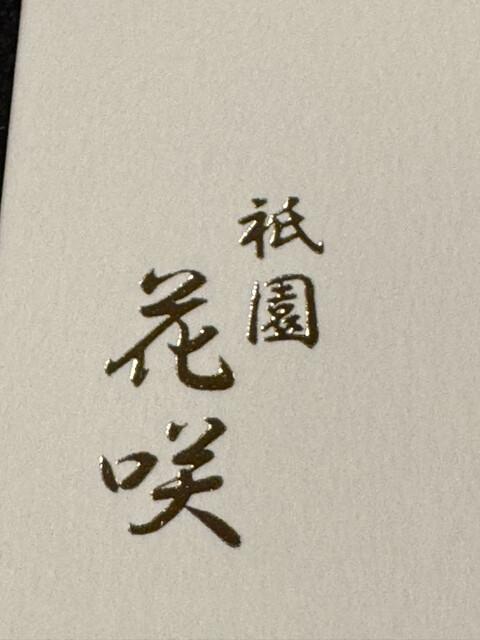 祇園
花咲